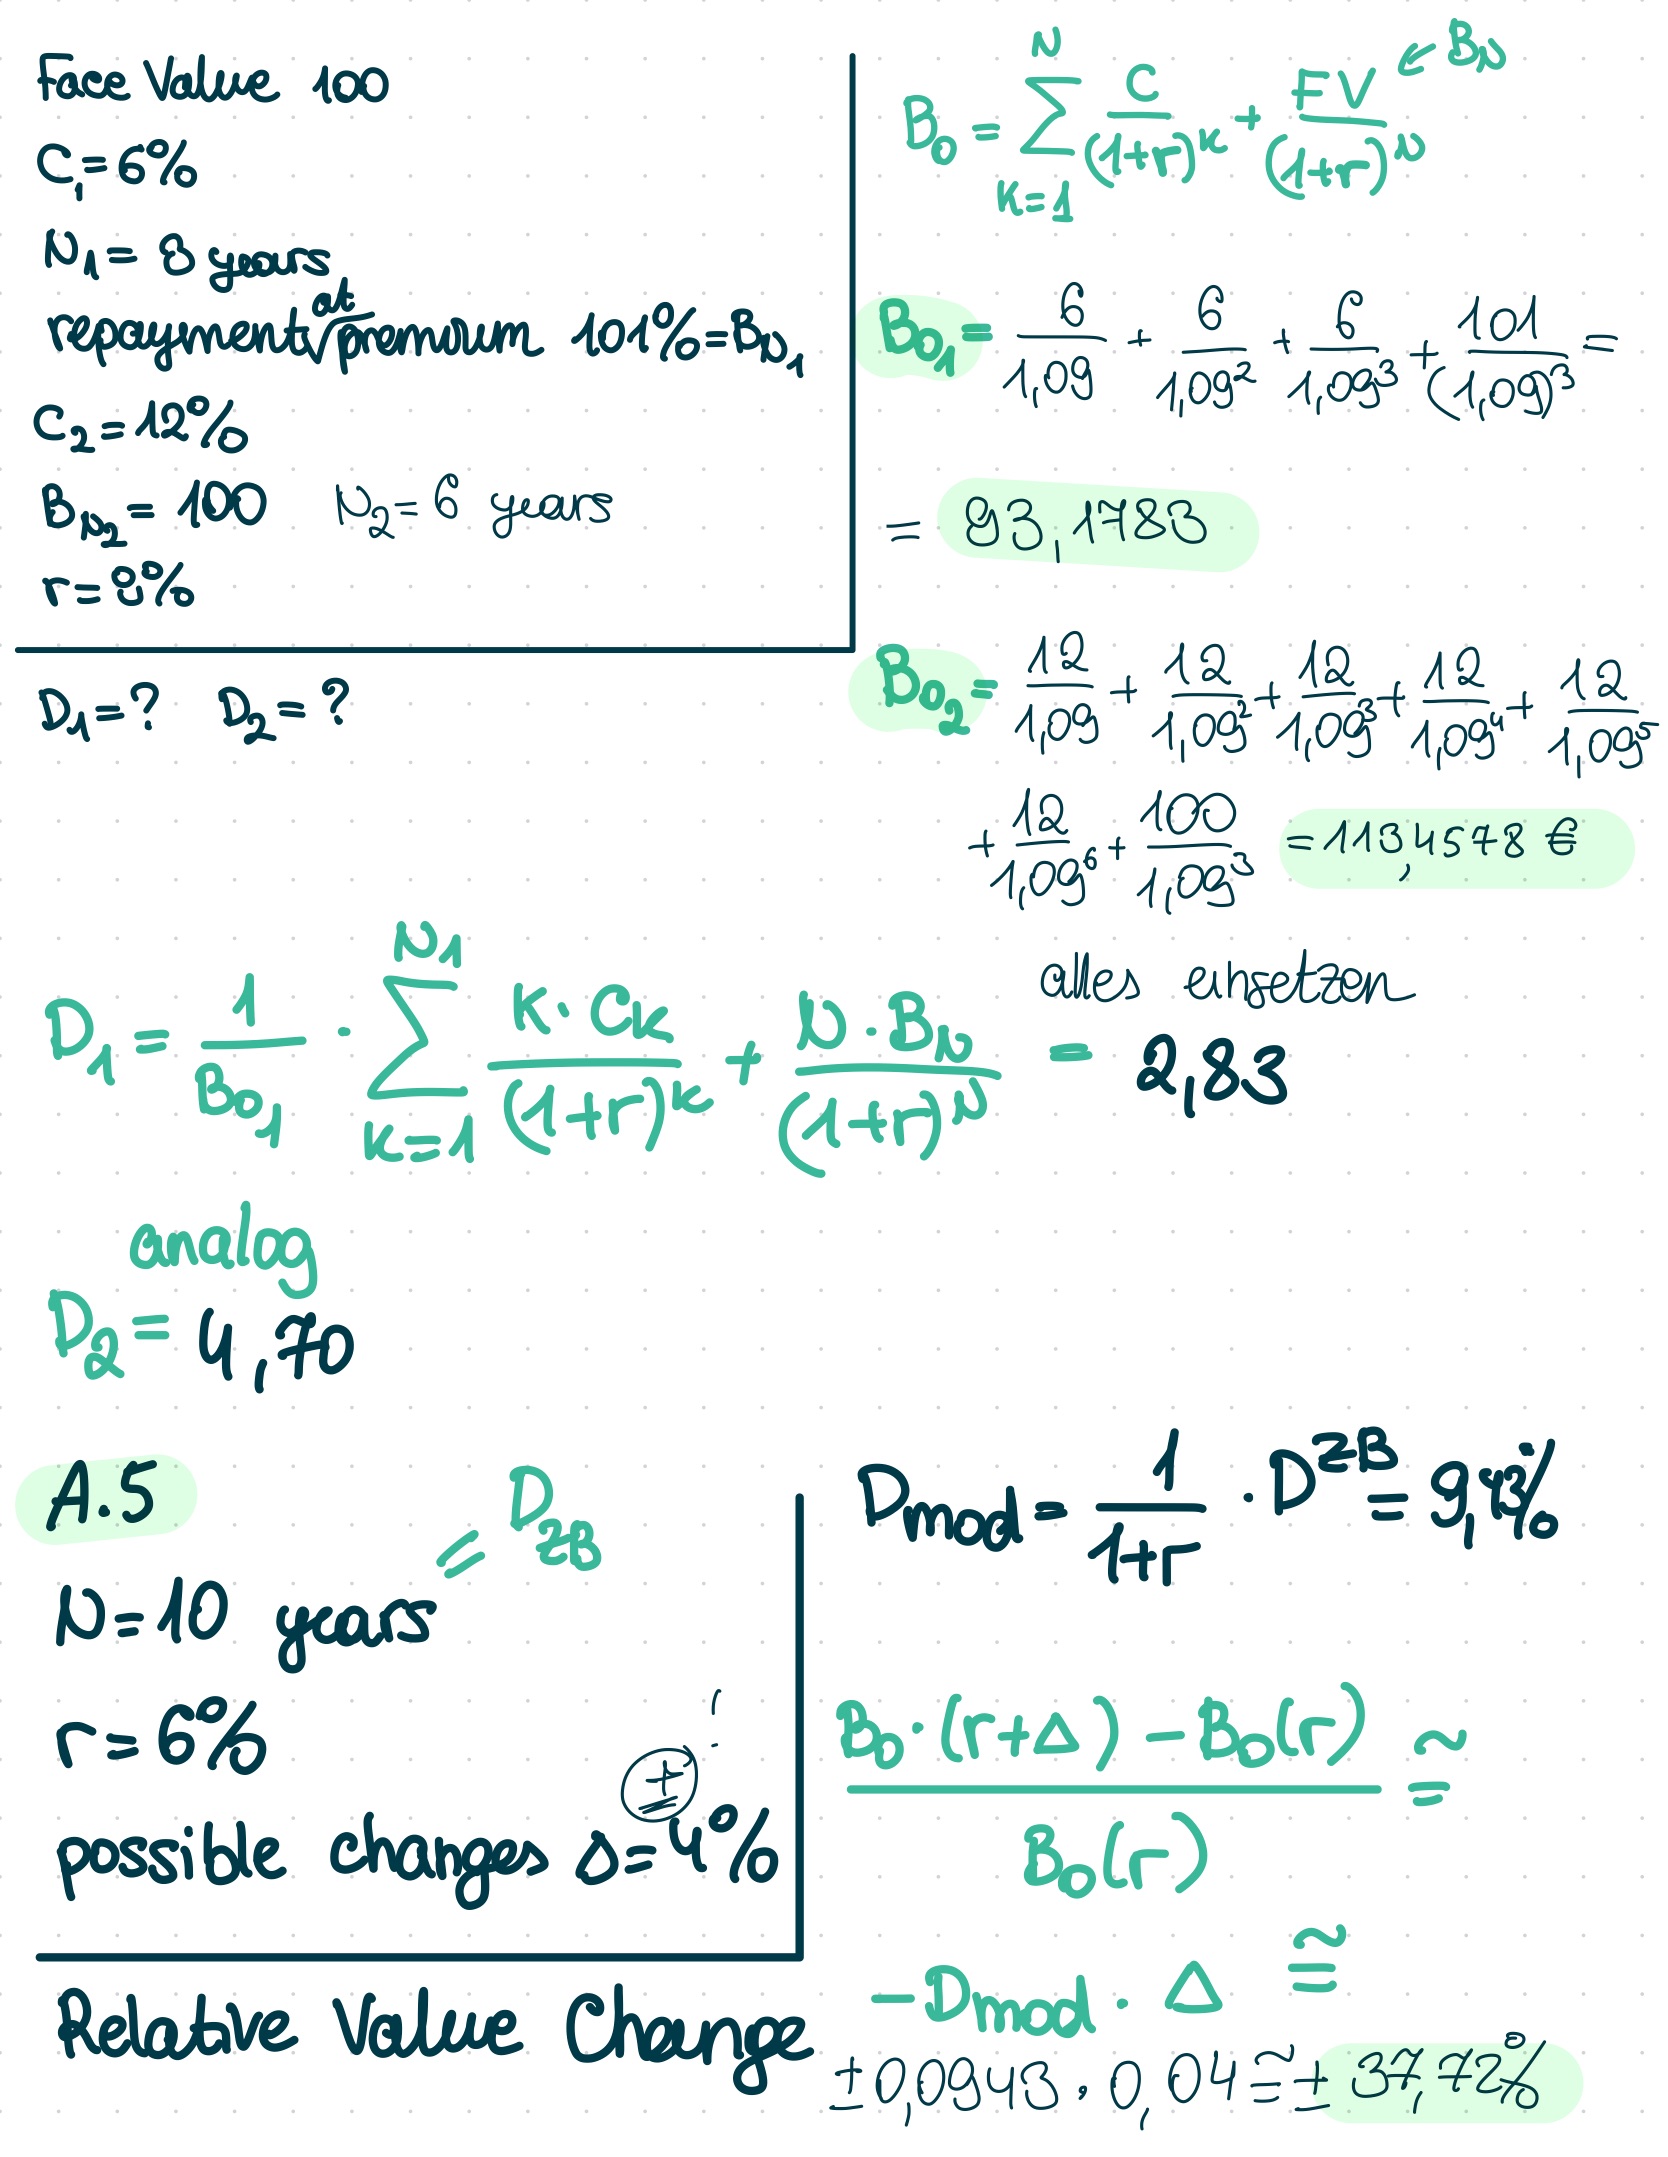 Face Value 100
C₁ = 6%
N₁ = 3 years
repayment at premium 101% = B_N₁
C₂ = 12%
B_N₂ = 100 N₂ = 6 years
r = 9%
D₁ = ? D₂ = ?
B₀ = ∑_{K=1}^{N} C/(1+r)^K + FV/(1+r)^N ← B_N
B₀₁ = 6/1,09 + 6/1,09² + 6/1,09³ + 101/(1,09)³ =
= 93,1783
B₀₂ = 12/1,09 + 12/1,09² + 12/1,09³ + 12/1,09⁴ + 12/1,09⁵
+ 12/1,09⁶ + 100/1,09³ = 113,4578 €
alles einsetzen
D₁ = 1/B₀₁ · ∑_{K=1}^{N₁} K · C_K/(1+r)^K + N · B_N/(1+r)^N = 2,83
analog
D₂ = 4,70
A.5
N = 10 years = D_ZB
r = 6%
possible changes Δ = ± 4%
Relative Value Change
D_mod = 1/(1+r) · D^ZB = 9,43%
B₀ · (r+Δ) − B₀(r) / B₀(r) ≅
−D_mod · Δ ≅
± 0,0943 · 0,04 ≅ ± 37,72%